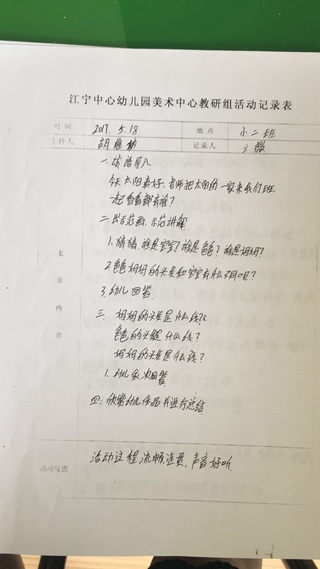 江宁中心幼儿园美术中心教研组活动记录表
时间 2017.5.18 地点 小二班
主持人 胡 记录人
一、谈话导入
今天太阳真好,老师把太阳的一家来我们班
一起看看都有谁?
二、出示范画,示范讲解
1.猜猜谁是宝宝?谁是爸爸?谁是妈妈?
2.爸爸妈妈的头发和宝宝有什么不同呢?
3.幼儿回答
三、妈妈的头发是什么线?
爸爸的头发是什么线?
妈妈的头发是什么线?
1.幼儿依次回答
四、欣赏幼儿作品并进行总结
主要内容
活动反思 活动过程流畅连贯,声音好听